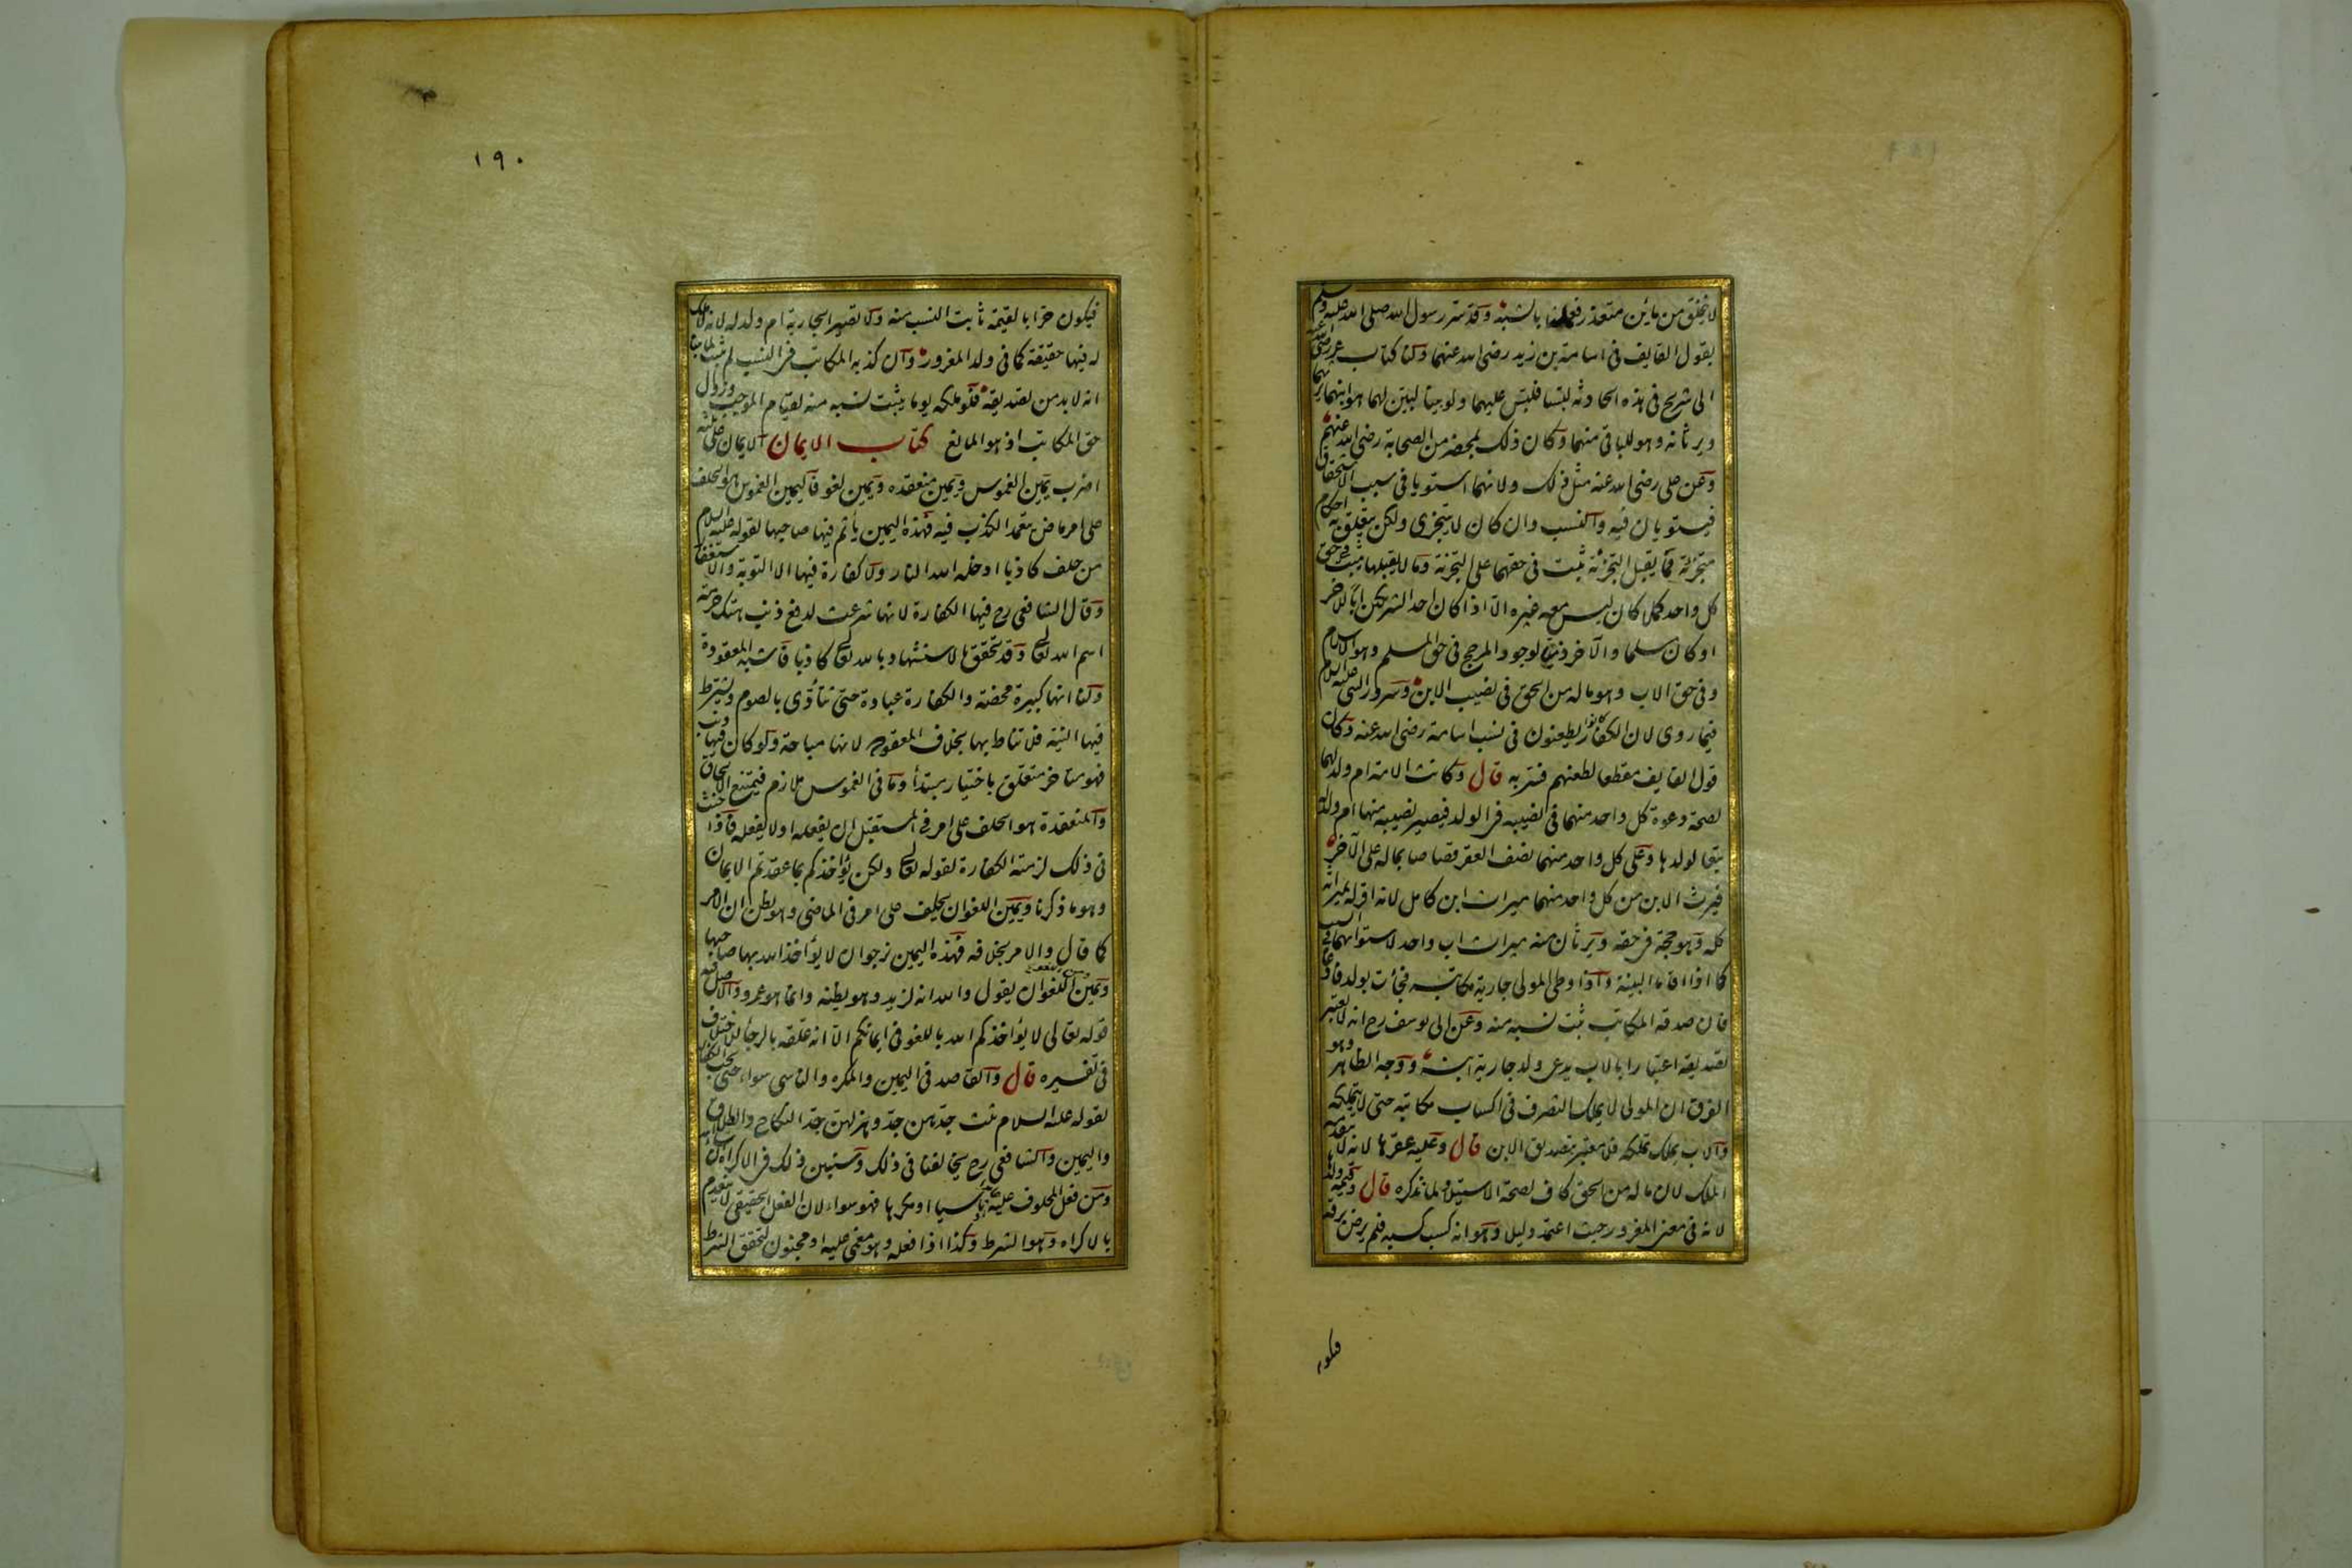 لا يتخلق من مائين متعذر فعملنا بالشبه وقد سر رسول الله صلى الله عليه وسلم
بقول القايف في اسامة بن زيد رضى الله عنهما ولنا كتاب عمر رضى الله عنه
الى شريح في هذه الحادثة لبسا فلبس عليهما ولو بينا لبين لهما هو ابنهما يرثهما
ويرثانه وهو للباقى منهما وكان ذلك بمحضر من الصحابة رضى الله عنهم
وعن على رضى الله عنه مثل ذلك ولانهما استويا في سبب الاستحقاق
فيستويان فيه والنسب وان كان لا يتجزى ولكن يتعلق به احكام
متجزئة فما يقبل التجزئة يثبت في حقهما على التجزئة وما لا يقبلها يثبت في حق
كل واحد كملا كان ليس معه غيره الا اذا كان احد الشريكين ابا للاخر
او كان مسلما والآخر ذميا لوجود المرجح في حق المسلم وهو الاسلام
وفي حق الاب وهو ماله من الحق في نصيب الابن وسرور النبى عليه السلام
فيما روى لان الكفار كانوا يطعنون في نسب اسامة رضى الله عنه وكان
قول القايف مقطعا لطعنهم فسر به قال وكانت الامة ام ولد لهما
لصحة دعوة كل واحد منهما في نصيبه في الولد فيصير نصيبه منها ام ولد له
تبعا لولدها وعلى كل واحد منهما نصف العقر قصاصا بماله على الآخر
فيرث الابن من كل واحد منهما ميراث ابن كامل لانه اقر له بميراثه
كله وهو حجة في حقه ويرثان منه ميراث اب واحد لاستوائهما في السبب
كما اذا اقاما البينة واذا وطى المولى جارية مكاتبه فجأت بولد فادعاه
فان صدقه المكاتب ثبت نسبه منه وعن ابى يوسف رح انه لا يعتبر
تصديقه اعتبارا بالاب يدعى ولد جارية ابنه ووجه الظاهر وهو
الفرق ان المولى لا يملك التصرف في اكساب مكاتبه حتى لا يتملكه
والاب يملك تملكه فلا معتبر بتصديق الابن قال وعليه عقرها لانه لا يتقدمه
الملك لان ماله من الحق كاف لصحة الاستيلاد لما نذكره قال وقيمة ولدها
لانه في معنى المغرور حيث اعتمد دليلا وهو انه كسب كسبه فلم يرض برقه
فيكون
١٩٠
فيكون حرا بالقيمة ثابت النسب منه ولا تصير الجارية ام ولد له لانه لا ملك
له فيها حقيقة كما في ولد المغرور وان كذبه المكاتب في النسب لم يثبت لما بينا
انه لا بد من تصديقه فلو ملكه يوما يثبت نسبه منه لقيام الموجب وزوال
حق المكاتب اذ هو المانع كتاب الايمان الايمان على ثلثة
اضرب يمين الغموس ويمين منعقدة ويمين لغو فاليمين الغموس هو الحلف
على امر ماض يتعمد الكذب فيه فهذه اليمين يأثم فيها صاحبها لقوله عليه السلام
من حلف كاذبا ادخله الله النار ولا كفارة فيها الا التوبة والاستغفار
وقال الشافعى رح فيها الكفارة لانها شرعت لدفع ذنب هتك حرمة
اسم الله تعالى وقد تحقق بالاستشهاد بالله تعالى كاذبا فاشبه المعقودة
ولنا انها كبيرة محضة والكفارة عبادة حتى تتأدى بالصوم ويشترط
فيها النية فلا تناط بها بخلاف المعقودة لانها مباحة ولو كان فيها ذنب
فهو متاخر متعلق باختيار مبتدأ وما في الغموس ملازم فيمتنع الالحاق
والمنعقدة هو الحلف على امر في المستقبل ان يفعله او لا يفعله فاذا حنث
في ذلك لزمته الكفارة لقوله تعالى ولكن يؤاخذكم بما عقدتم الايمان
وهو ما ذكرنا ويمين اللغو ان يحلف على امر في الماضى وهو يظن ان الامر
كما قال والامر بخلافه فهذه اليمين نرجو ان لا يؤاخذ الله بها صاحبها
ومن اللغو ان يقول والله انه لزيد وهو يظنه وانما هو عمرو والاصل فيه
قوله تعالى لا يؤاخذكم الله باللغو في ايمانكم الا انه علقه بالرجأ للاختلاف
في تفسيره قال والقاصد في اليمين والمكره والناسى سواء حتى تجب الكفارة
لقوله عليه السلام ثلث جدهن جد وهزلهن جد النكاح والطلاق
واليمين والشافعى رح يخالفنا في ذلك وسنبين ذلك في الاكراه ان شاء الله
ومن فعل المحلوف عليه ناسيا او مكرها فهو سواء لان الفعل الحقيقى لا ينعدم
بالاكراه وهو الشرط وكذا اذا فعله وهو مغمى عليه او مجنون لتحقق الشرط